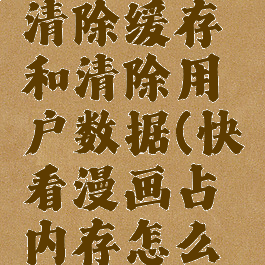 清除缓存
和清除用
户数据(快
看漫画占
内存怎么